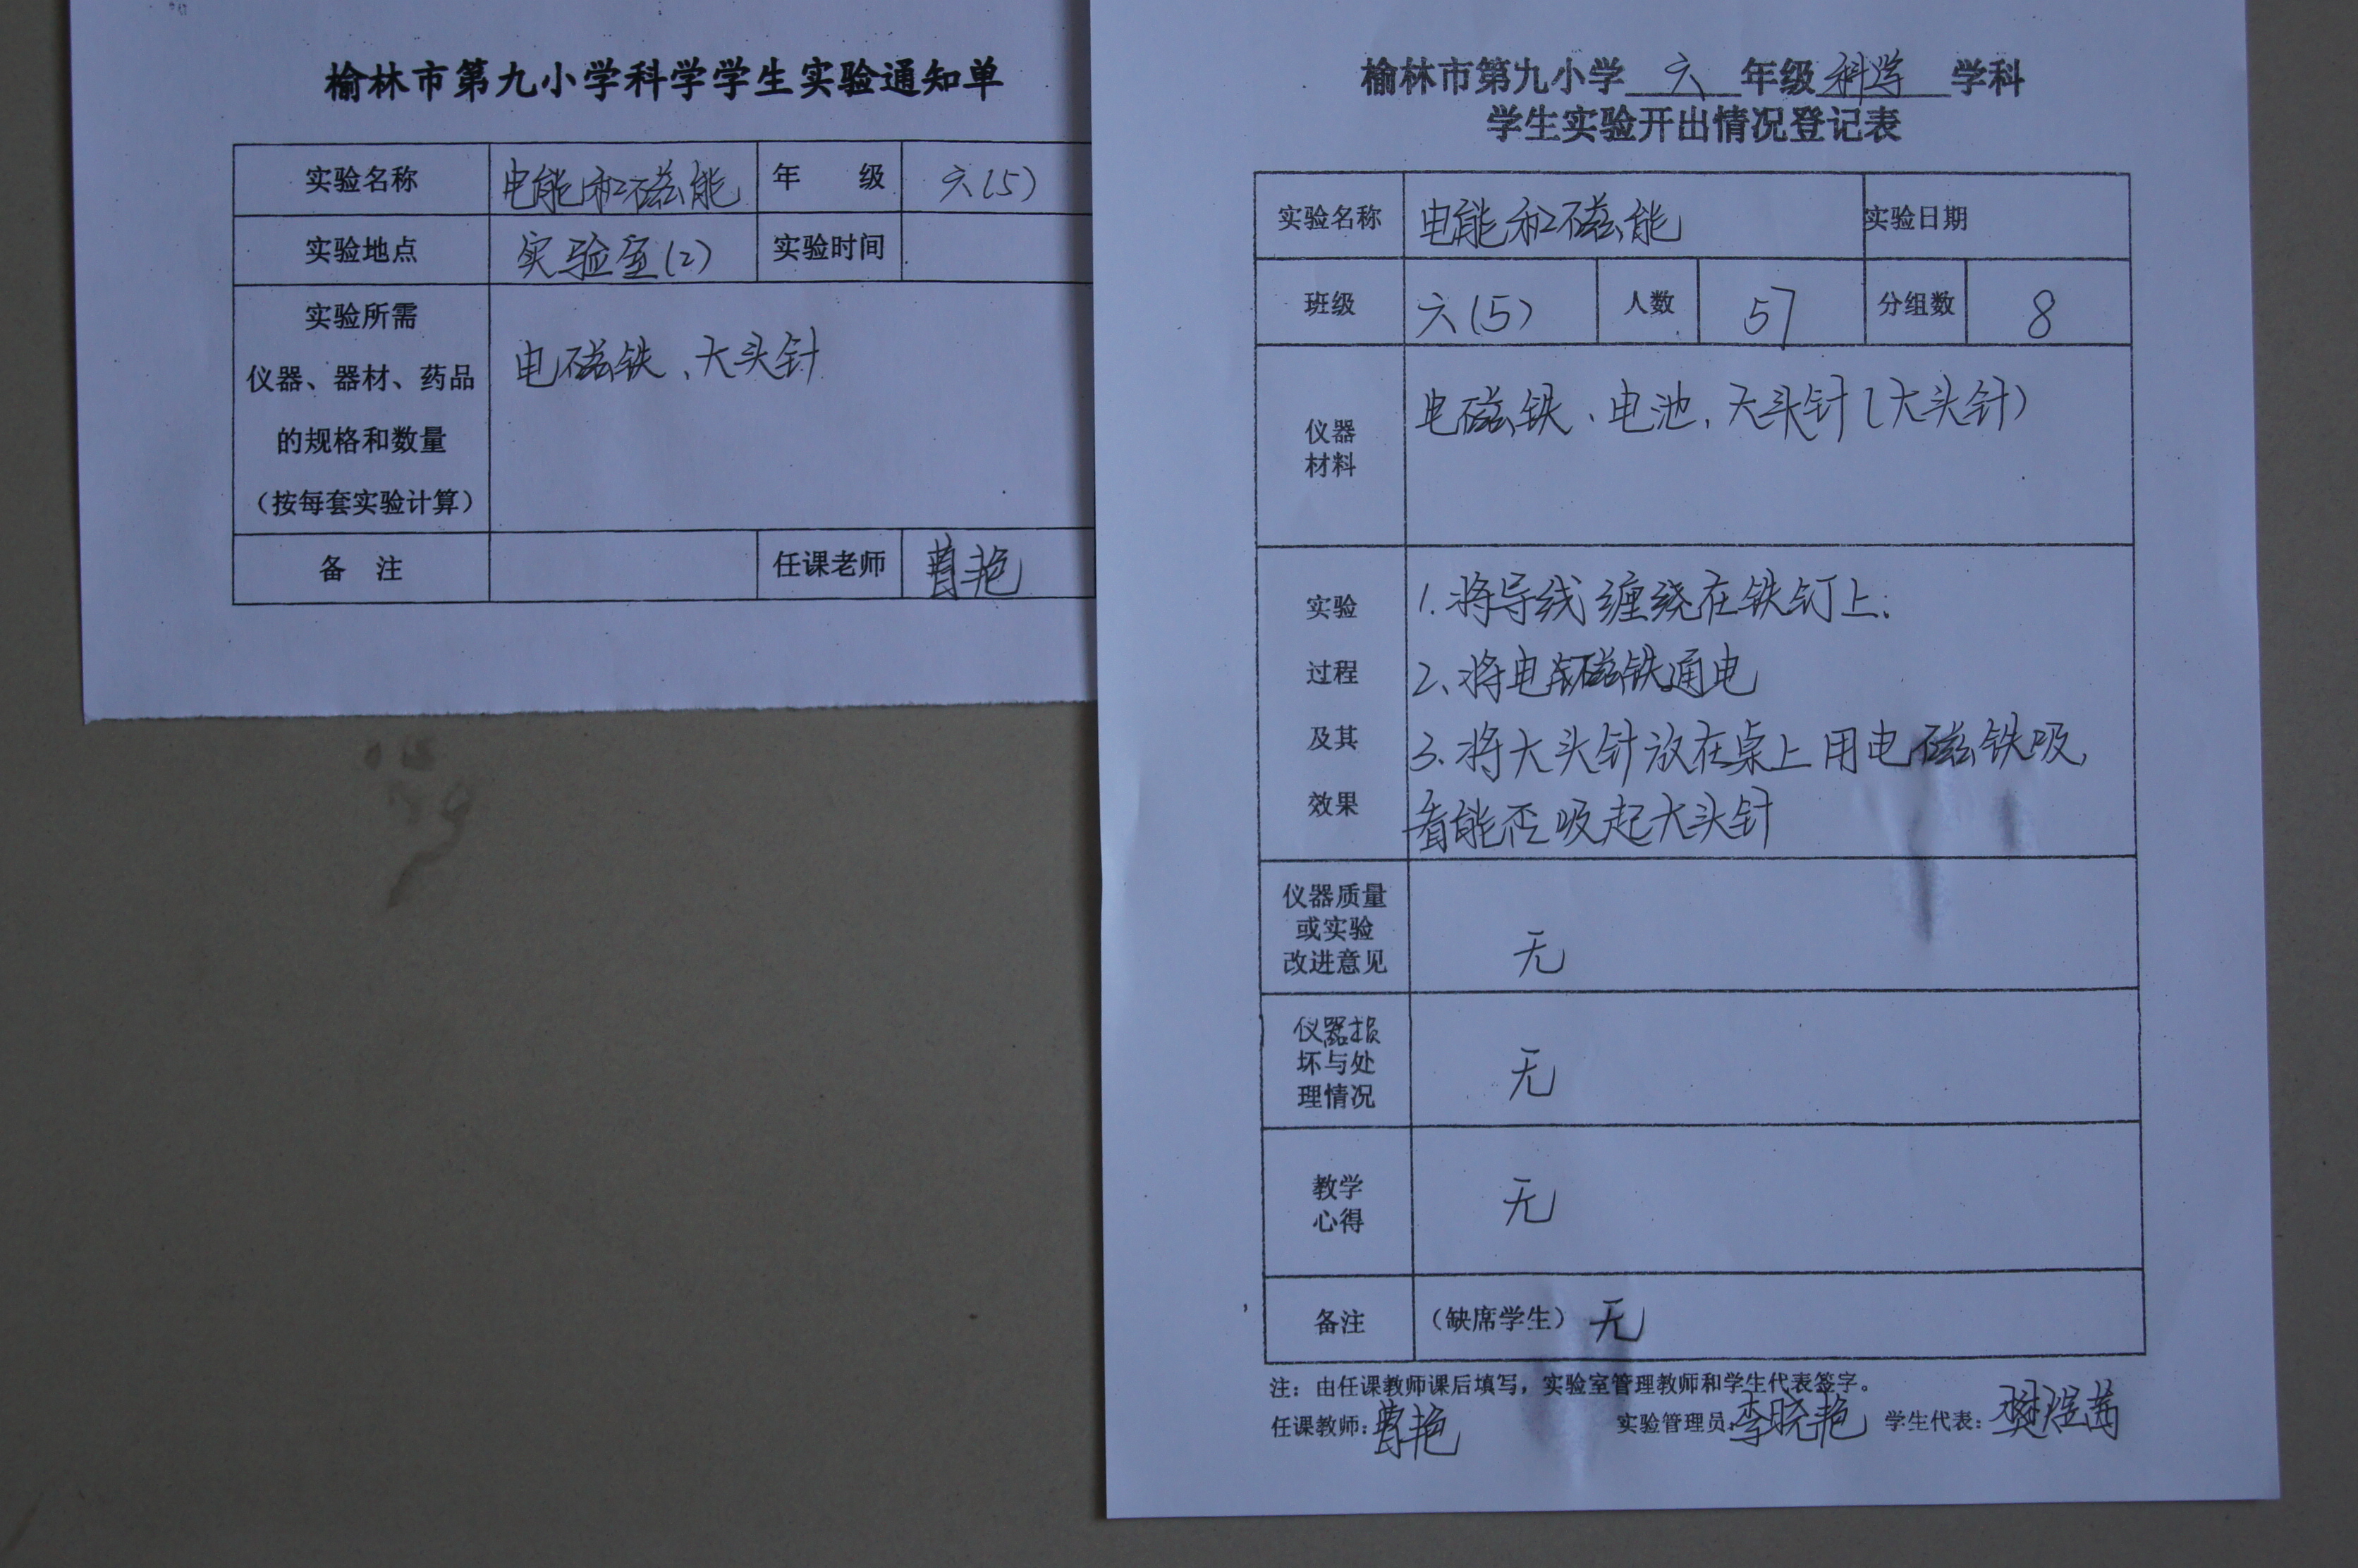 榆林市第九小学科学学生实验通知单
实验名称 电能和磁能 年 级 六(5)
实验地点 实验室(2) 实验时间
实验所需
仪器、器材、药品
的规格和数量
(按每套实验计算)
电磁铁、大头针
备 注 任课老师 曹艳
榆林市第九小学 六 年级 科学 学科
学生实验开出情况登记表
实验名称 电能和磁能 实验日期
班级 六(5) 人数 57 分组数 8
仪器
材料
电磁铁、电池、大头针(大头针)
实验
过程
及其
效果
1.将导线缠绕在铁钉上.
2、将电磁铁通电
3、将大头针放在桌上用电磁铁吸,
看能否吸起大头针
仪器质量
或实验
改进意见
无
仪器损
坏与处
理情况
无
教学
心得
无
备注 (缺席学生) 无
注:由任课教师课后填写,实验室管理教师和学生代表签字。
任课教师:曹艳 实验管理员:李晓艳 学生代表: